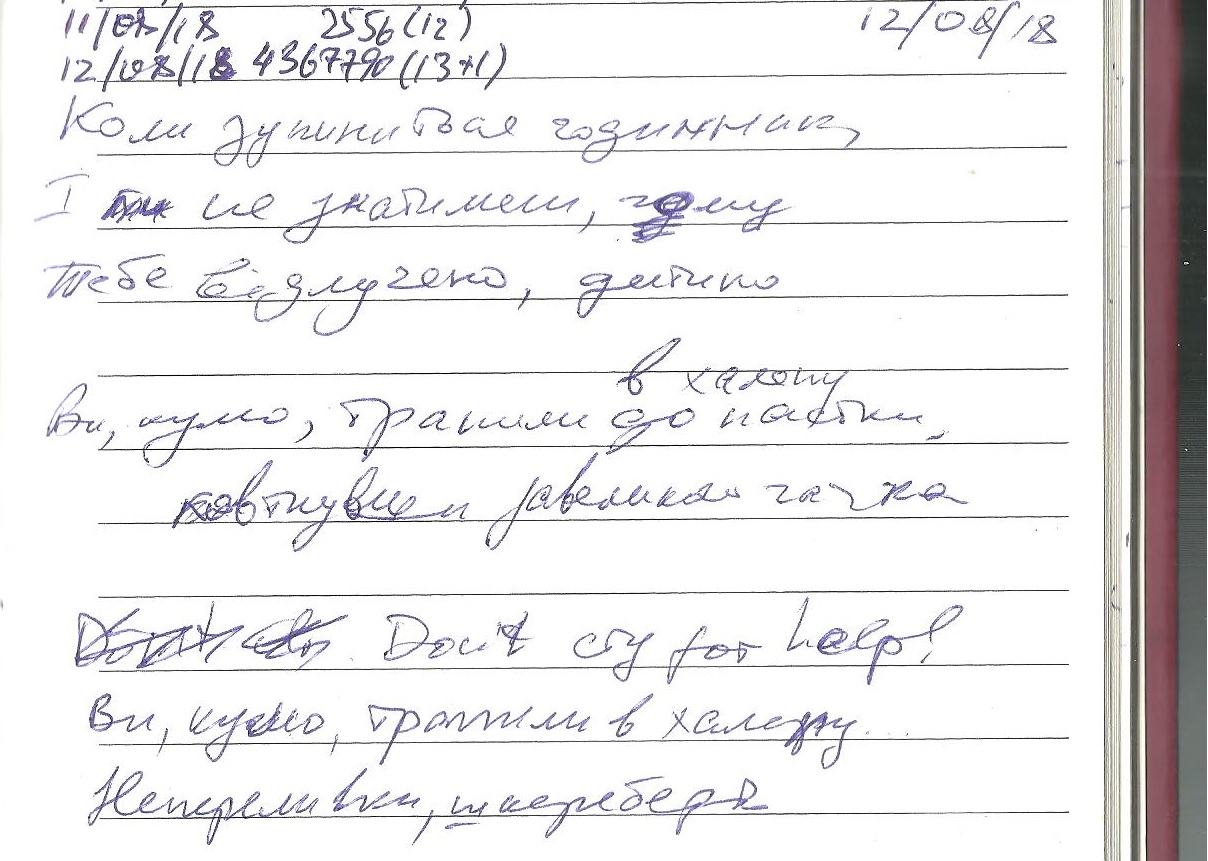 11/08/18 2556(12) 12/08/18
12/08/18 4367790(13+1)
Коли зупиниться годинник,
І не знатимеш, чому
Тебе відлучено, дитино
в халепу
Ви, кумо, трапили до пастки,
ковтнувши завеликий гачка
Don't cry for help!
Ви, кумо, трапили в халепу...
Непереливки, шкереберть